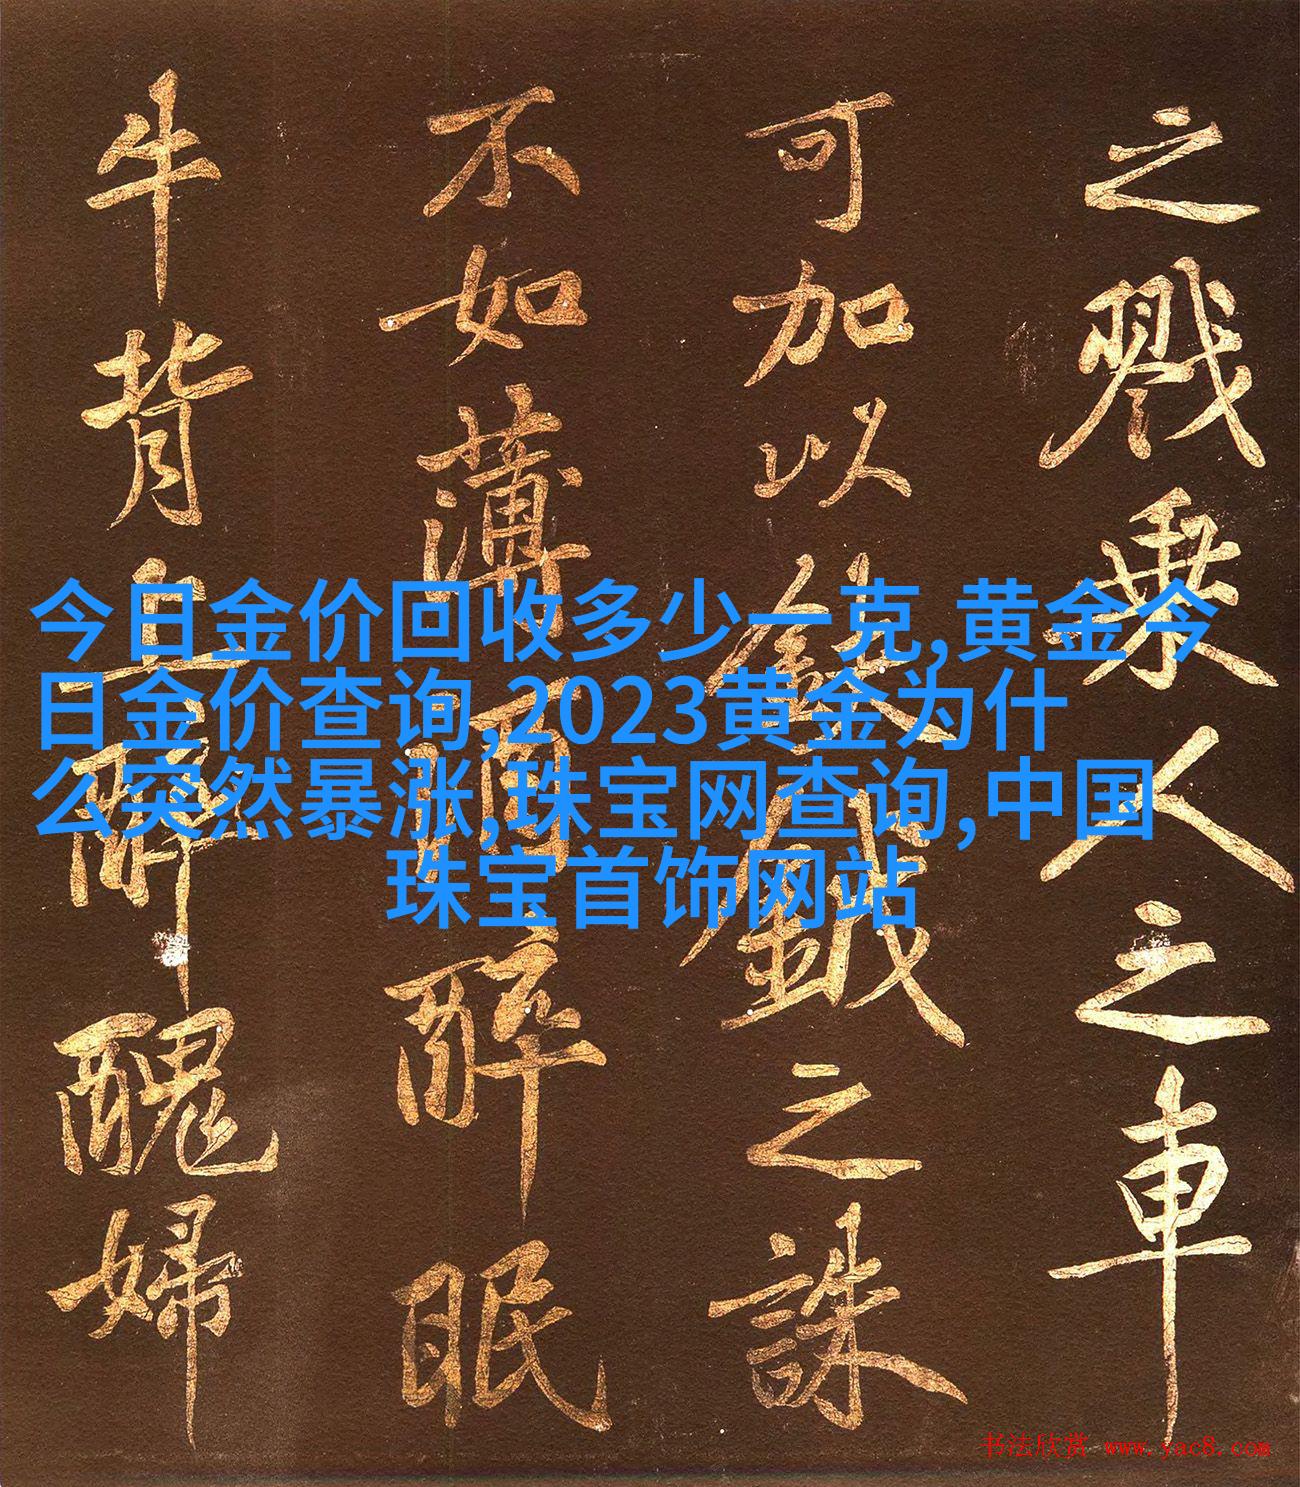 之戮乘人之車
可加以鈇鉞之誅
不如薄酒醉眠
牛背上醉醜婦
今日金价回收多少一克,黄金今
日金价查询,2023黄金为什
么突然暴涨,珠宝网查询,中国
珠宝首饰网站
书法欣赏 www.yac8.com